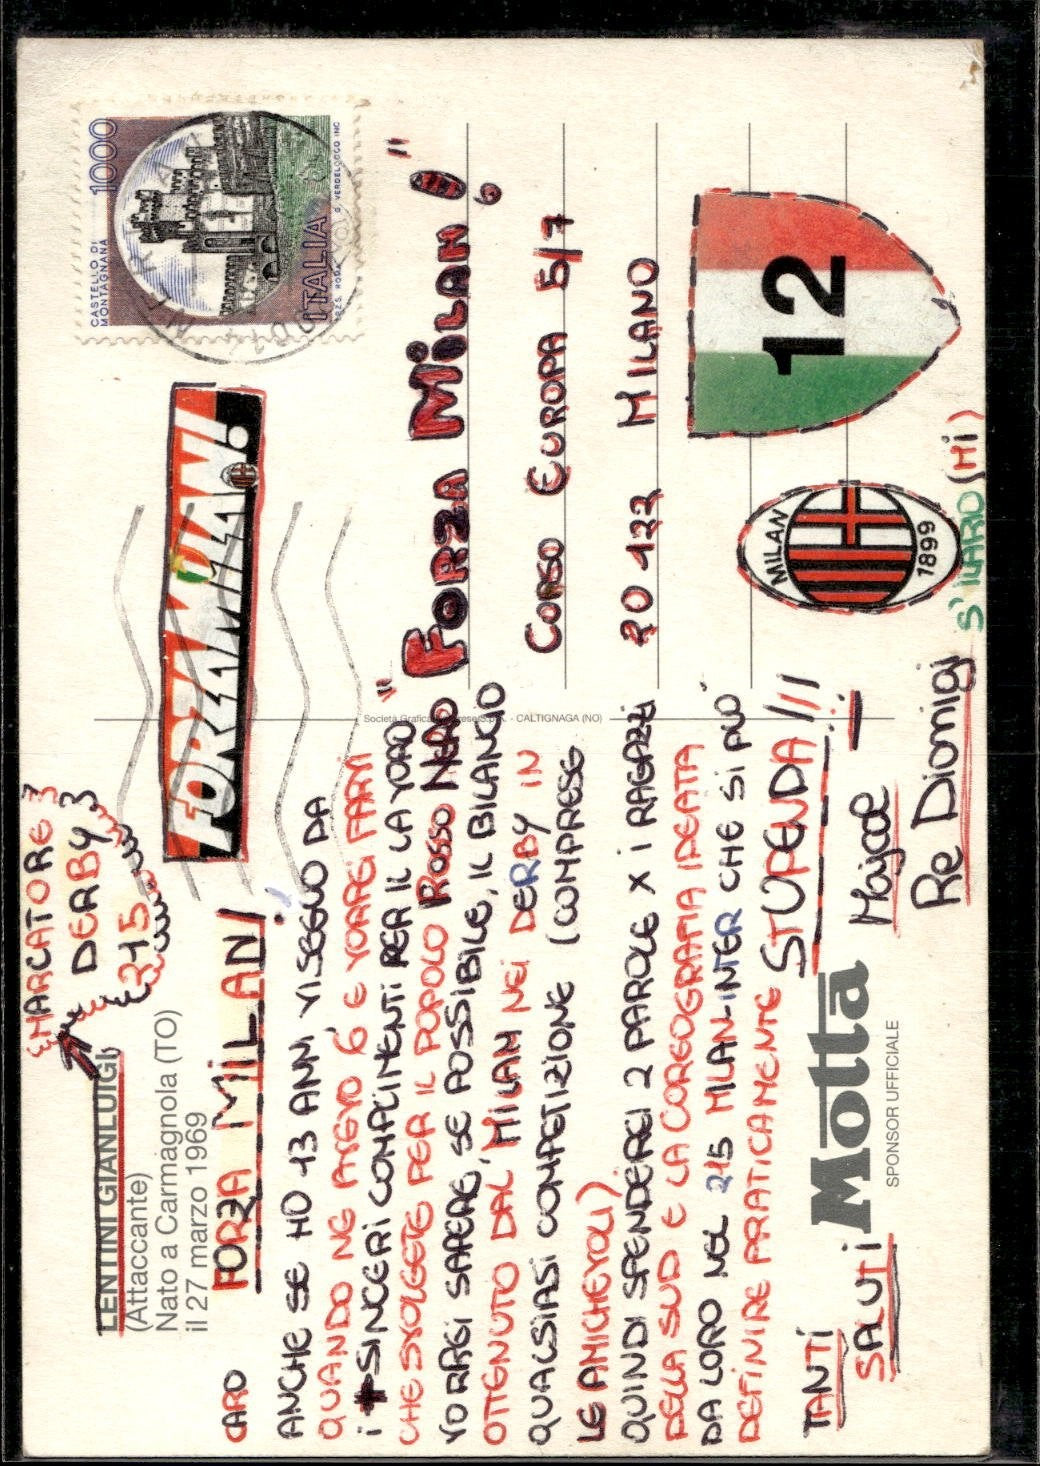 {MARCATORE 3
DERBY 3
21\5
LENTINI GIANLUIGI
(Attaccante)
Nato a Carmagnola (TO)
il 27 marzo 1969
CARO FORZA MILAN!
ANCHE SE HO 13 ANNI VI SEGUO DA
QUANDO NE AVEVO 6 E VORREI FARVI
i + SINCERI COMPLIMENTI PER IL LAVORO
CHE SVOLGETE PER IL POPOLO ROSSO NERO
VORREI SAPERE, SE POSSIBILE, IL BILANCIO
OTTENUTO DAL MILAN NEI DERBY IN
QUALSIASI COMPETIZIONE (COMPRESE
LE AMICHEVOLI)
QUINDI SPENDEREI 2 PAROLE X i RAGAZZI
DELLA SUD E LA COREOGRAFIA IDEATA
DA LORO NEL 21\5 MILAN-INTER CHE SI PUÒ
DEFINIRE PRATICAMENTE STUPENDA!!!
TANTI
SALUTI
Motta
SPONSOR UFFICIALE
Re Dionigi
S'ILARIO (MI)
Società Grafica
- CALTIGNAGA (NO)
FORZA MILAN!
CASTELLO DI
MONTAGNANA
1000
ITALIA
"FORZA MILAN!"
CORSO EUROPA 5/7
20122 MILANO
MILAN
1899
12